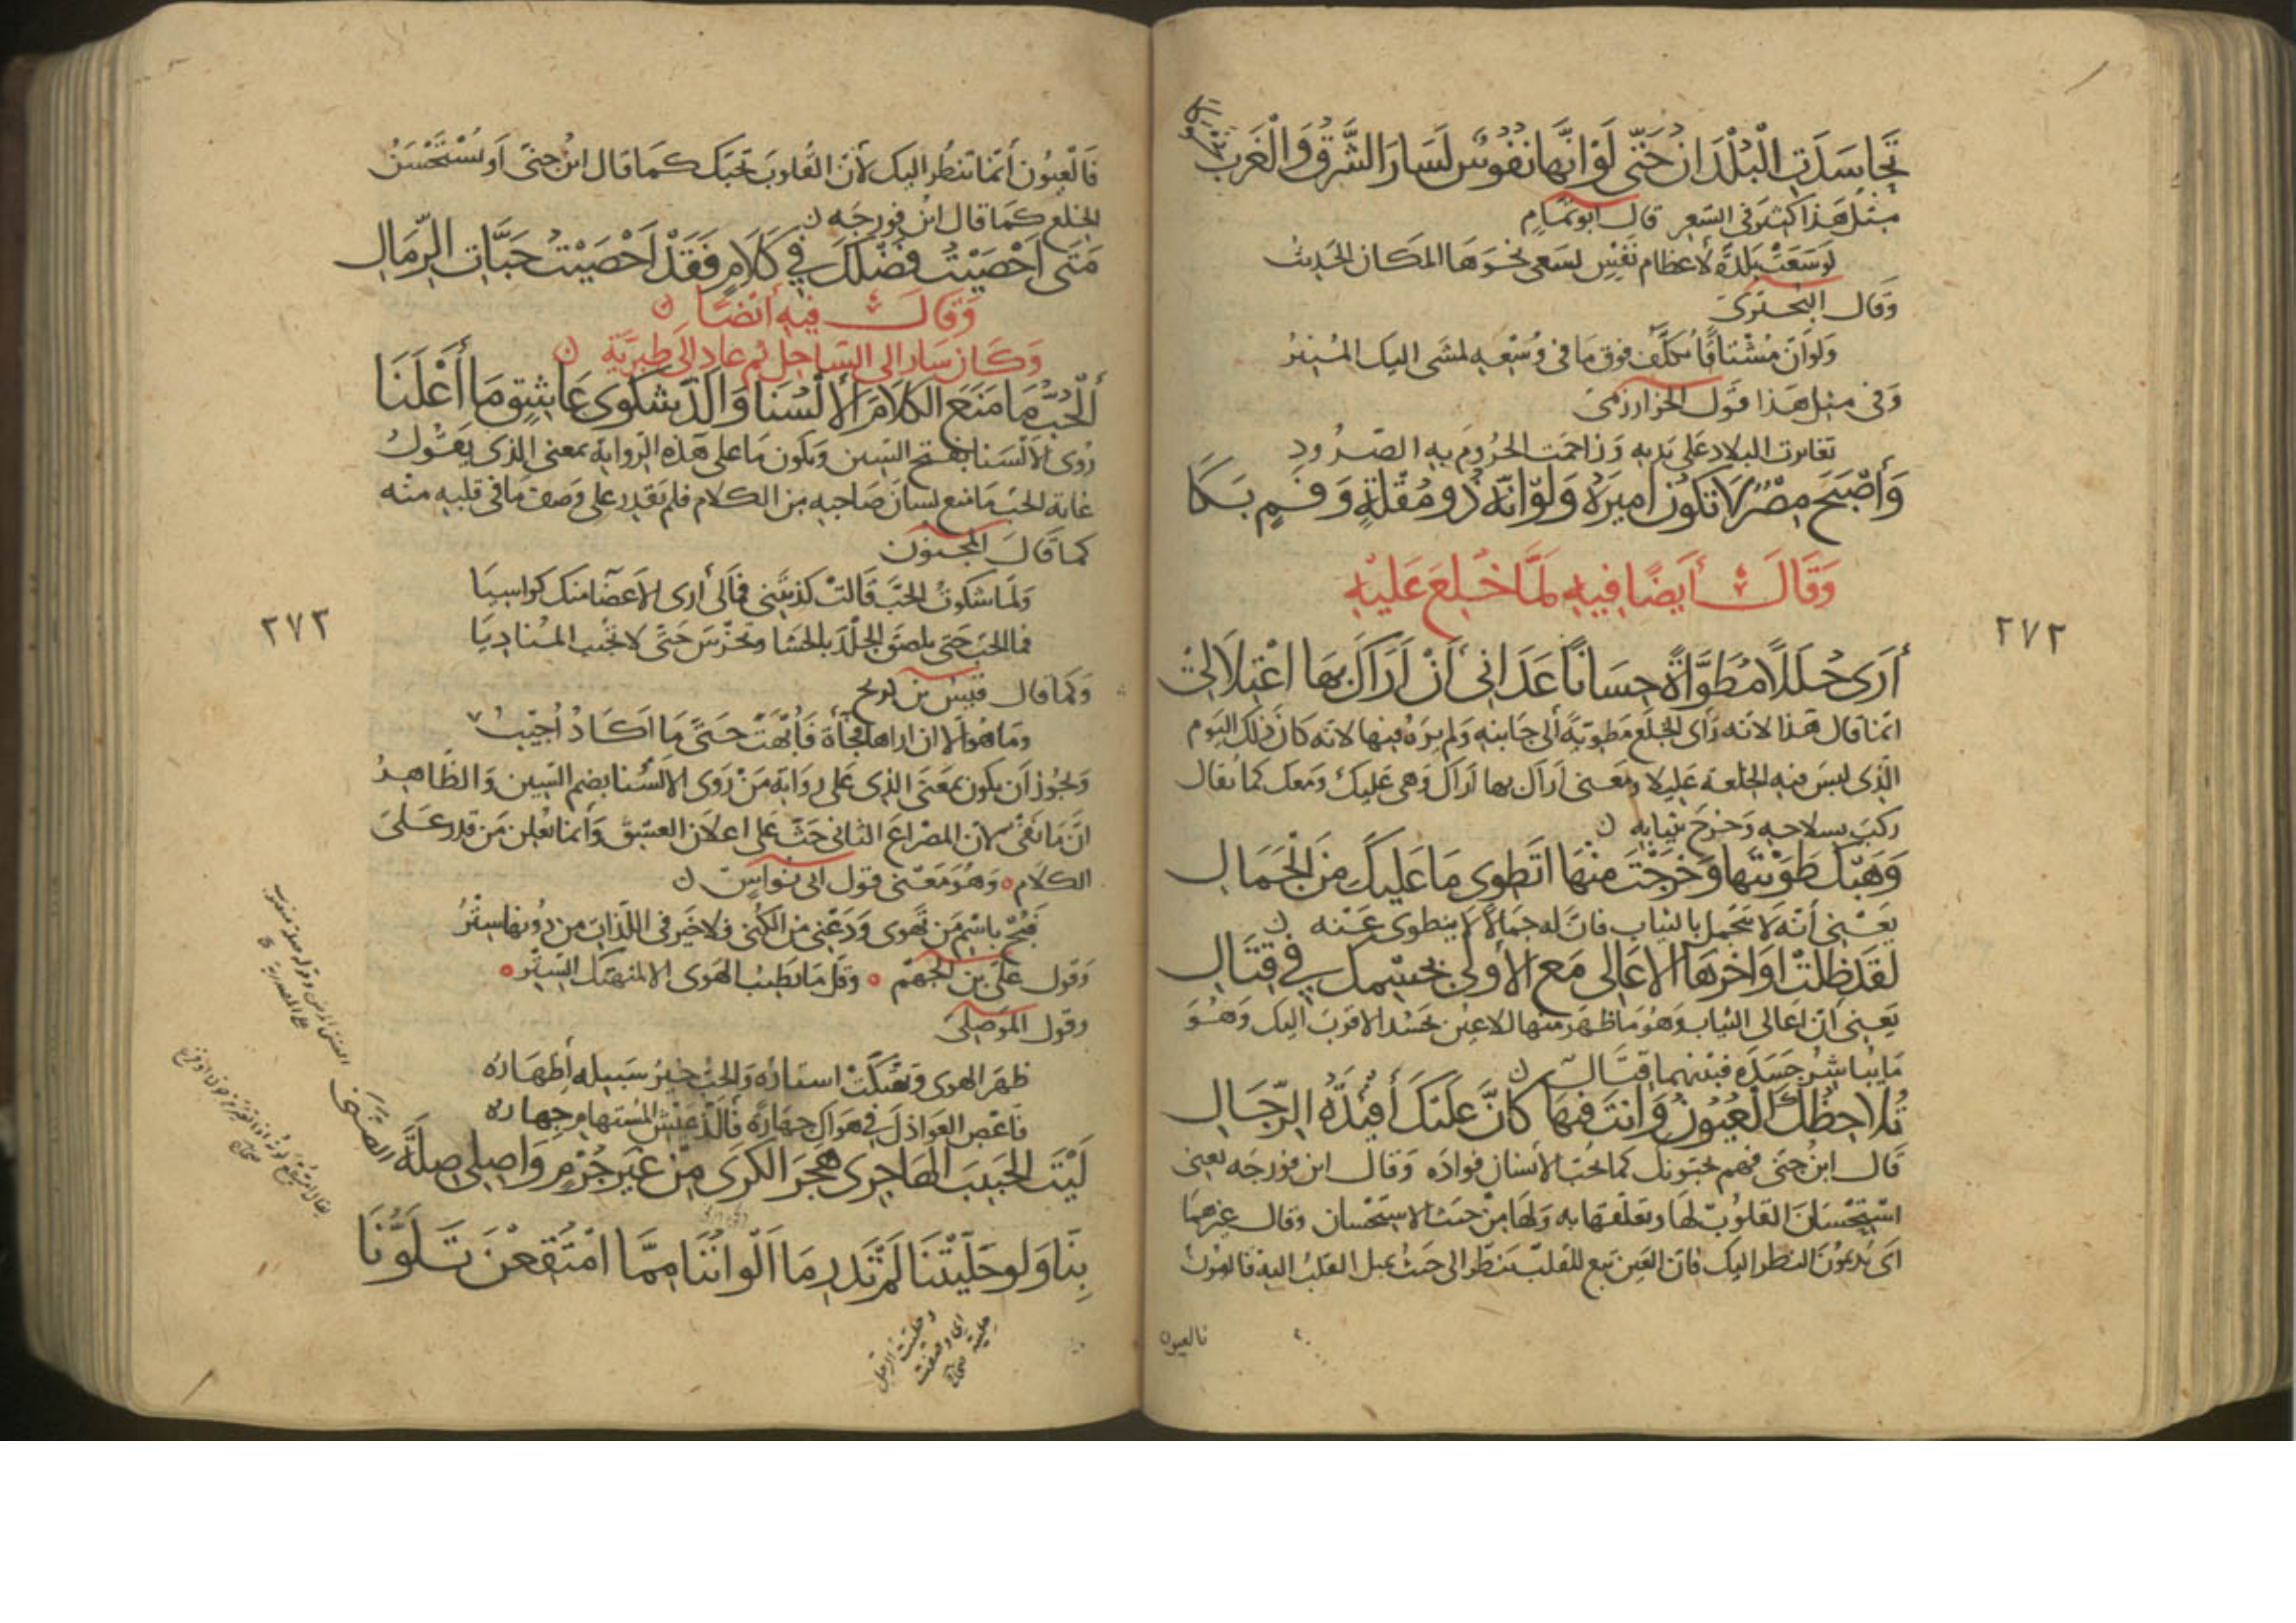 تَحَاسَدَتِ الْبُلْدَانُ حَتَّى لَوْ انَّهَا نُفُوسٌ لَسَارَ الشَّرْقُ وَالْغَرْبُ
مثل هَذا كثير في الشعر قال أبو تمّام
لو سَعَتْ بلدةٌ لاعظام نَفْسٍ لسَعى نحوَهَا المكان الجديبُ
وقال البحترى
ولو اَنّ مُشْتاقًا تكلّف فوق مَا في وُسْعِهِ لمشَى اليك المنبرُ
وفى مثل هَذا قول الخوارزمى
تغايرت البلاد على يديه وَزاحمَت الخروم به الصرُود
وَأَصْبَحَ مِصْرٌ لَا تَكُونُ اَمِيرَهُ وَلَوْ انَّهُ ذُو مُقْلَةٍ وَفَمٍ بَكَا
وَقَالَ أَيضًا فيهِ لَمَّا خُلِعَ عَلَيْهِ
أَرَى حُلَلًا مُطَوَّاةً حِسَانًا عَدَانِى أَنْ أَرَاكَ بِهَا اعْتِلَالِىْ
انما قال هَذا لانه رأى الخِلَع مَطويّةً الى جَانبه وَلم يرَهُ فيها لانه كان ذلك اليَوم
الّذى لبسَ فيه الخلعة عَليلا ومَعنى اَراك بها اَراك وَهى عَليك وَمعك كما يقال
ركبَ بسلاحه وَخرجَ بثيابه ن
وَهَبْكَ طَوَيْتَهَا وَخَرَجْتَ مِنْهَا اَتَطْوِى مَا عَلَيْكَ مِنَ الْجَمَالِ
يَعْنِى أنّه لَا يتجَمل بالثياب فانّ له جمَالًا لا ينطوى عَنْه ن
لَقَد ظَلّتْ اَوَاخِرُهَا الاَعَالِى مَعَ الأُولَى بِجِسْمِكَ فِى قِتَالِ
يَعنى انّ اَعَالى الثياب وَهُوَ مَا ظهر منهَا للاعين تحسُد الاقربَ اليك وَهُوَ
مَا يُباشِرُ جَسَدَه فبَيْنهما قتَالٌ ن
تُلَاحِظُكَ الْعُيُونُ وَانتَ فِيهَا كَانَّ عَلَيْكَ أَفْئِدَةَ الرِّجَالِ
قَال ابنُ جنّى فهم يحبونك كما يُحبّ الانسان فوادَه وَقَال ابن فورّجَه يعنى
اسْتِحْسَانَ القلوب لهَا وتعلقهَا به وَلهَا من حيث الاستحْسان وقال غيرهما
اَى يُديمُونَ النظر اليك فانّ العَين تبع للقلب تنظر الى حَيثُ يميل القلبُ اليه فالعيون
فالعيون
٢٧٢
فَالْعيُون أنما تنظُر اليك لأنّ القُلوبَ تحبّك كما قال ابنُ جنى أو تستَحْسنُ
الخلع كمَا قال ابن فورجَه ن
مَتَى اَحْصَيْتُ فَضْلَكَ فِى كَلَامٍ فَقَدْ اَحْصَيْتُ حَبَّاتِ الرِّمَالِ
وَقَالَ فِيهِ أَيْضًا ن
وَكَان سَار الى السَّاحل ثم عاد الى طبريَّة ن
أَلْحُبُّ مَا مَنَعَ الكَلَامَ الأَلْسُنَا وَالَذّ شَكْوَى عَاشِقٍ مَا أَعْلَنَا
رُوى الالْسَنا بفتح السّين وَيكون مَا على هَذه الرّواية بمعنى الذى يَقُولُ
غاية الحبّ مَا منع لسانَ صَاحبه من الكلام فلم يَقدِر على وَصف مَا في قلبه منه
كما قالَ المجنون
وَلما شكوتُ الحبَّ قَالتْ كذبتَنى فمالى أرى الاعضَا منك كواسِيَا
فما الحبّ حَتى يلصق الجلدُ بالحشا وتخرسَ حَتّى لا تجيب المنَاديَا
وكما قال قيسُ بن ذريح
ومَا هُو الّا ان اراها فُجأةً فَأُبْهَتَ حَتّى مَا اَكادُ اُجيبُ
وَيجُوز أن يكون بمعنى الذى عَلى روَاية مَنْ رَوى الالْسُنا بضم السين وَالظّاهِرُ
انّ مَا نفىٌ لان المصرَاعَ الثانى حَثّ عَلى اعلان العشق وَانما يُعلِن مَن قدر عَلى
الكلام وَهُوَ مَعْنى قول ابى نواسٍ ن
فَبُحْ باسْم مَن تَهوى وَدَعْنى من الكُنى فلا خيرَ فى اللّذات من دُونها سِتْرُ
وَقول علىّ بن الجهْم وقلّ مَا يَطيبُ الهَوى الا لمنهتك السِتْر
وقول المَوْصِلى
ظهَر الهوى وتهتّكَتْ استارُهُ وَالحبُّ خيرُ سَبيلهِ أظهَارُهُ
فاعْصِ العَواذلَ فى هَوَاكَ جهارَةً فَأَلَذُّ عَيْشِ المُسْتَهام جهارُه
لَيْتَ الحَبِيبَ الهَاجِرِى هَجْرَ الكَرَى مِنْ غَيرِ جُرْمٍ وَاصِلِى صِلَةَ الضَّنَى
بِنَّا وَلَو حَلَّيْتَنَا لَمْ تَدْرِ مَا اَلْوَانُنَا مِمَّا امْتُقِعْنَ تَلَوُّنَا
٢٧٣